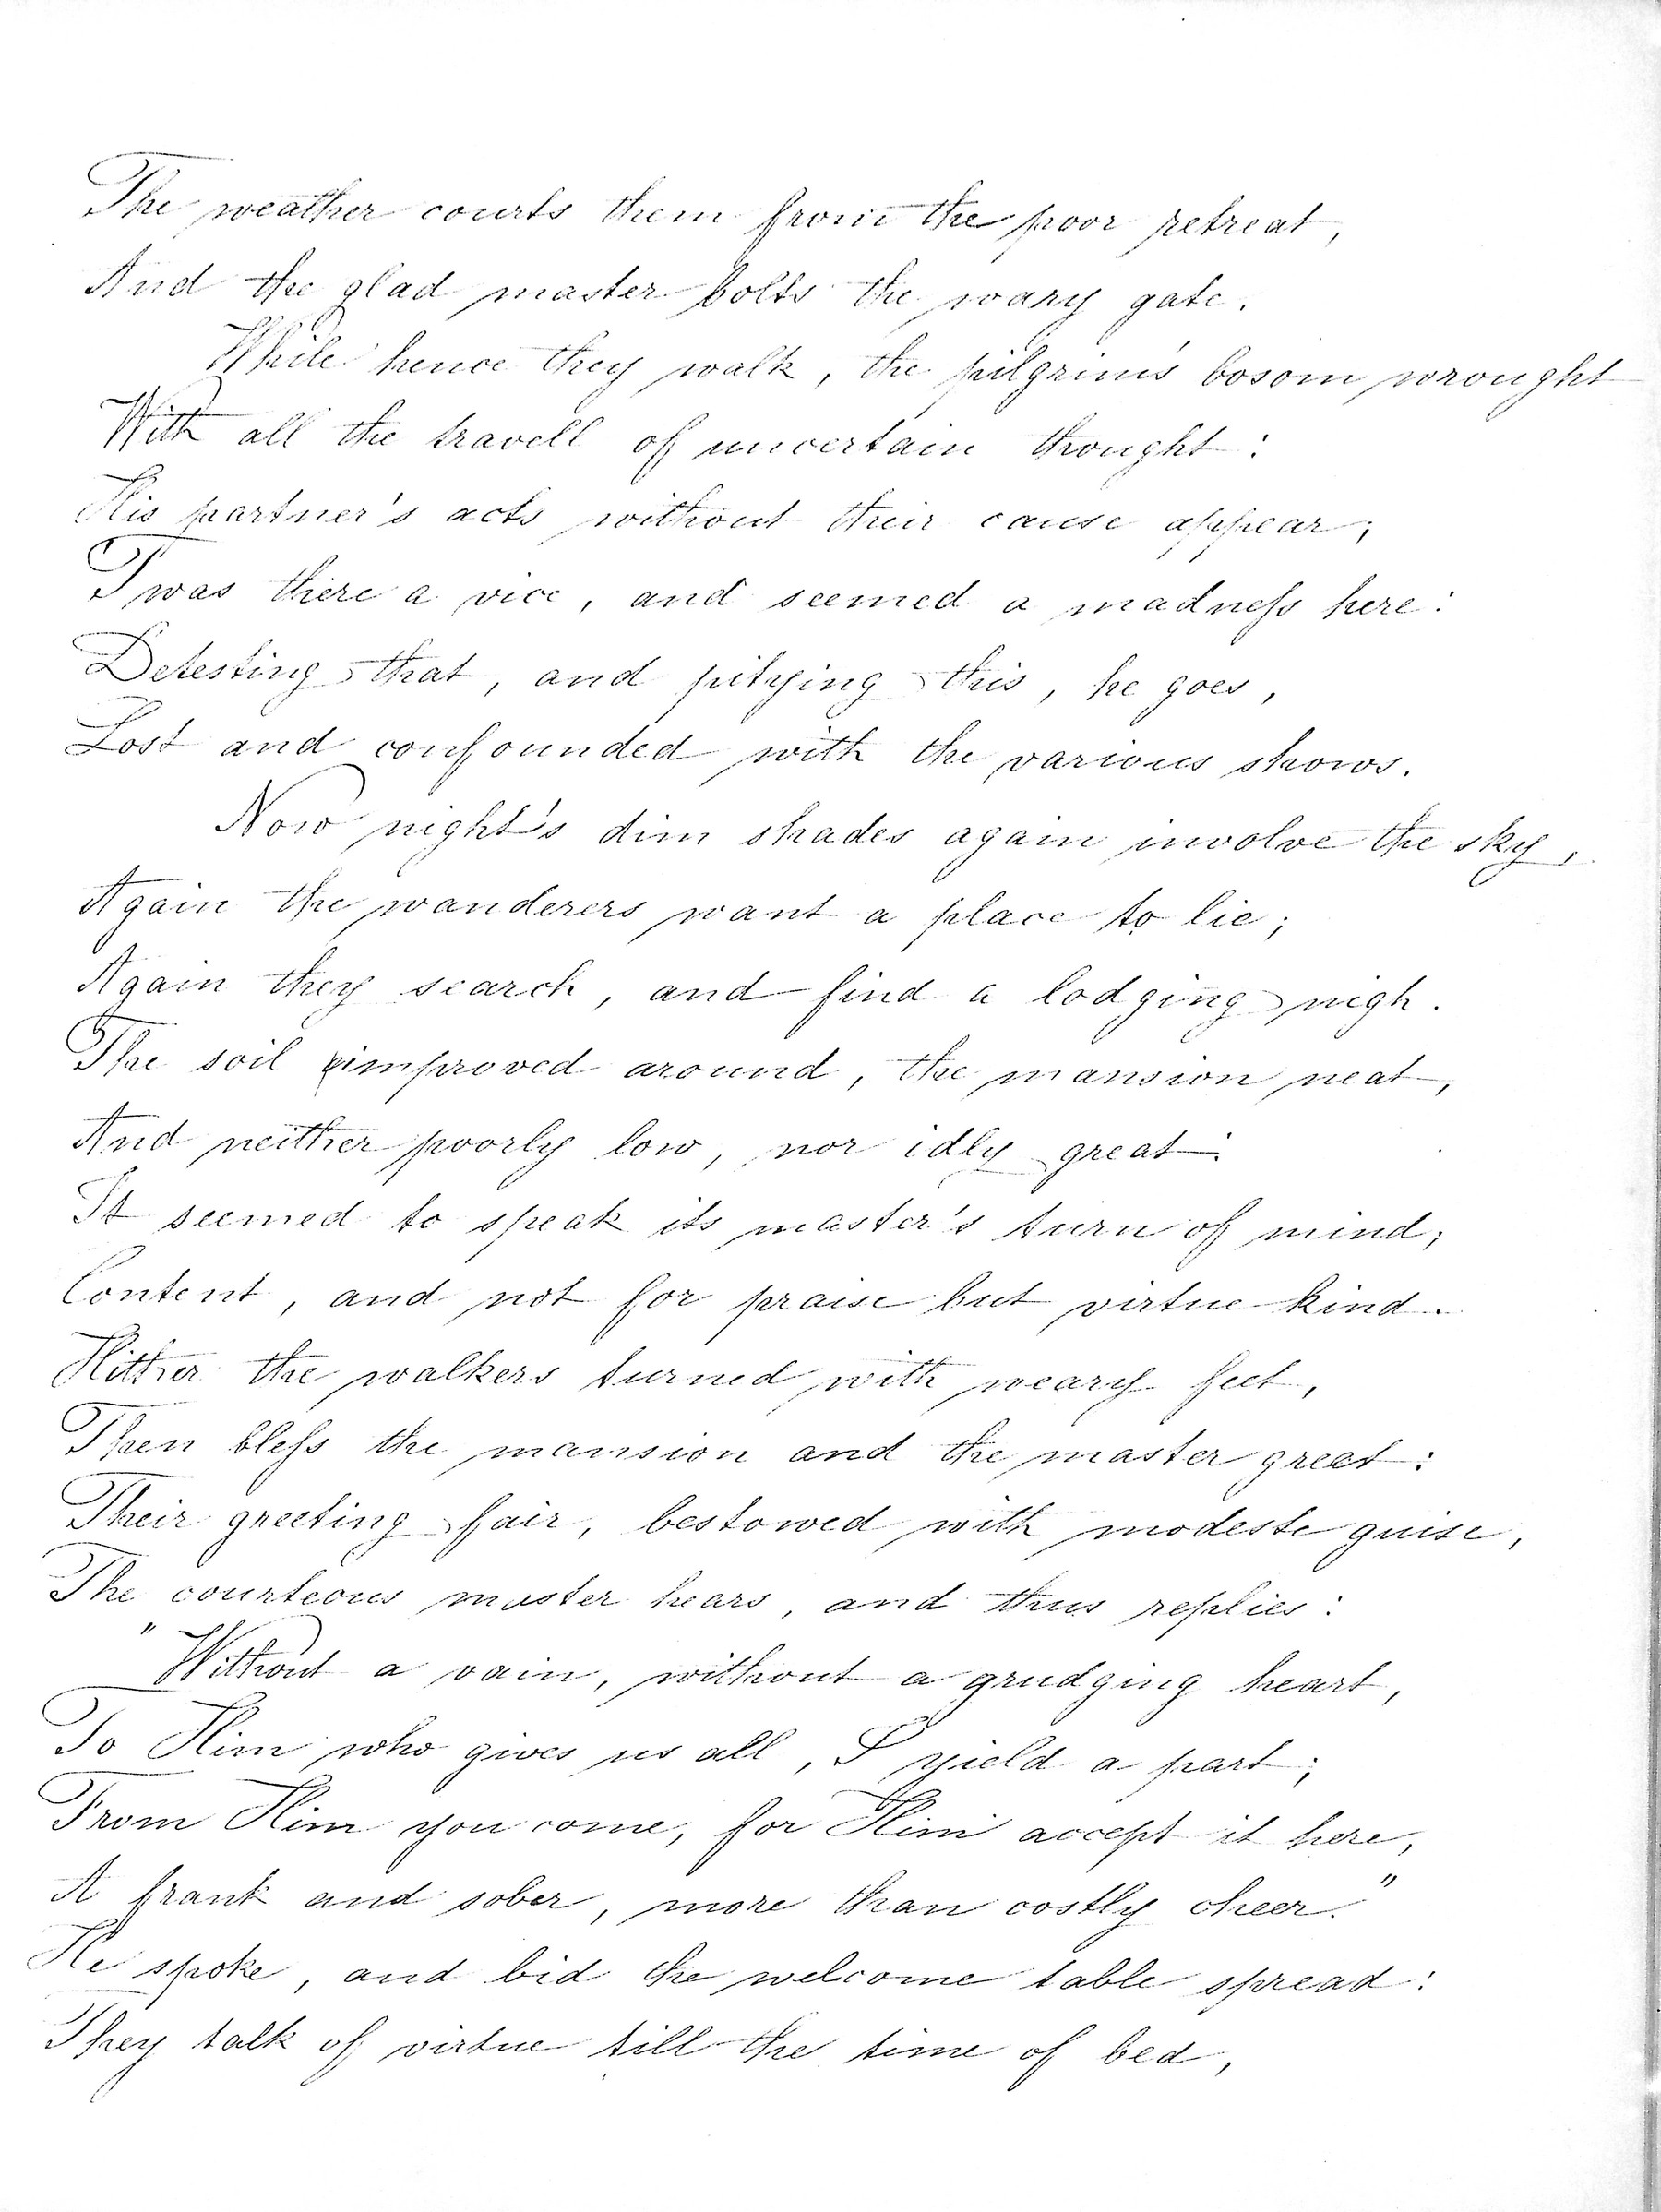 The weather courts them from the poor retreat,
And the glad master bolts the wary gate.
While hence they walk, the pilgrim's bosom wrought
With all the travell of uncertain thought:
His partner's acts without their cause appear;
Twas there a vice, and seemed a madneſs here:
Detesting that, and pitying this, he goes,
Lost and confounded with the various shows.
Now night's dim shades again involve the sky,
Again the wanderers want a place to lie;
Again they search, and find a lodging nigh.
The soil improved around, the mansion neat,
And neither poorly low, nor idly great:
It seemed to speak its master's turn of mind;
Content, and not for praise but virtue kind.
Hither the walkers turned with weary feet,
Then bleſs the mansion and the master greet:
Their greeting fair, bestowed with modeste guise,
The courteous master hears, and thus replies:
"Without a vain, without a grudging heart,
To Him who gives us all, I yield a part;
From Him you come, for Him accept it here,
A frank and sober, more than costly cheer."
He spoke, and bid the welcome table spread:
They talk of virtue till the time of bed,